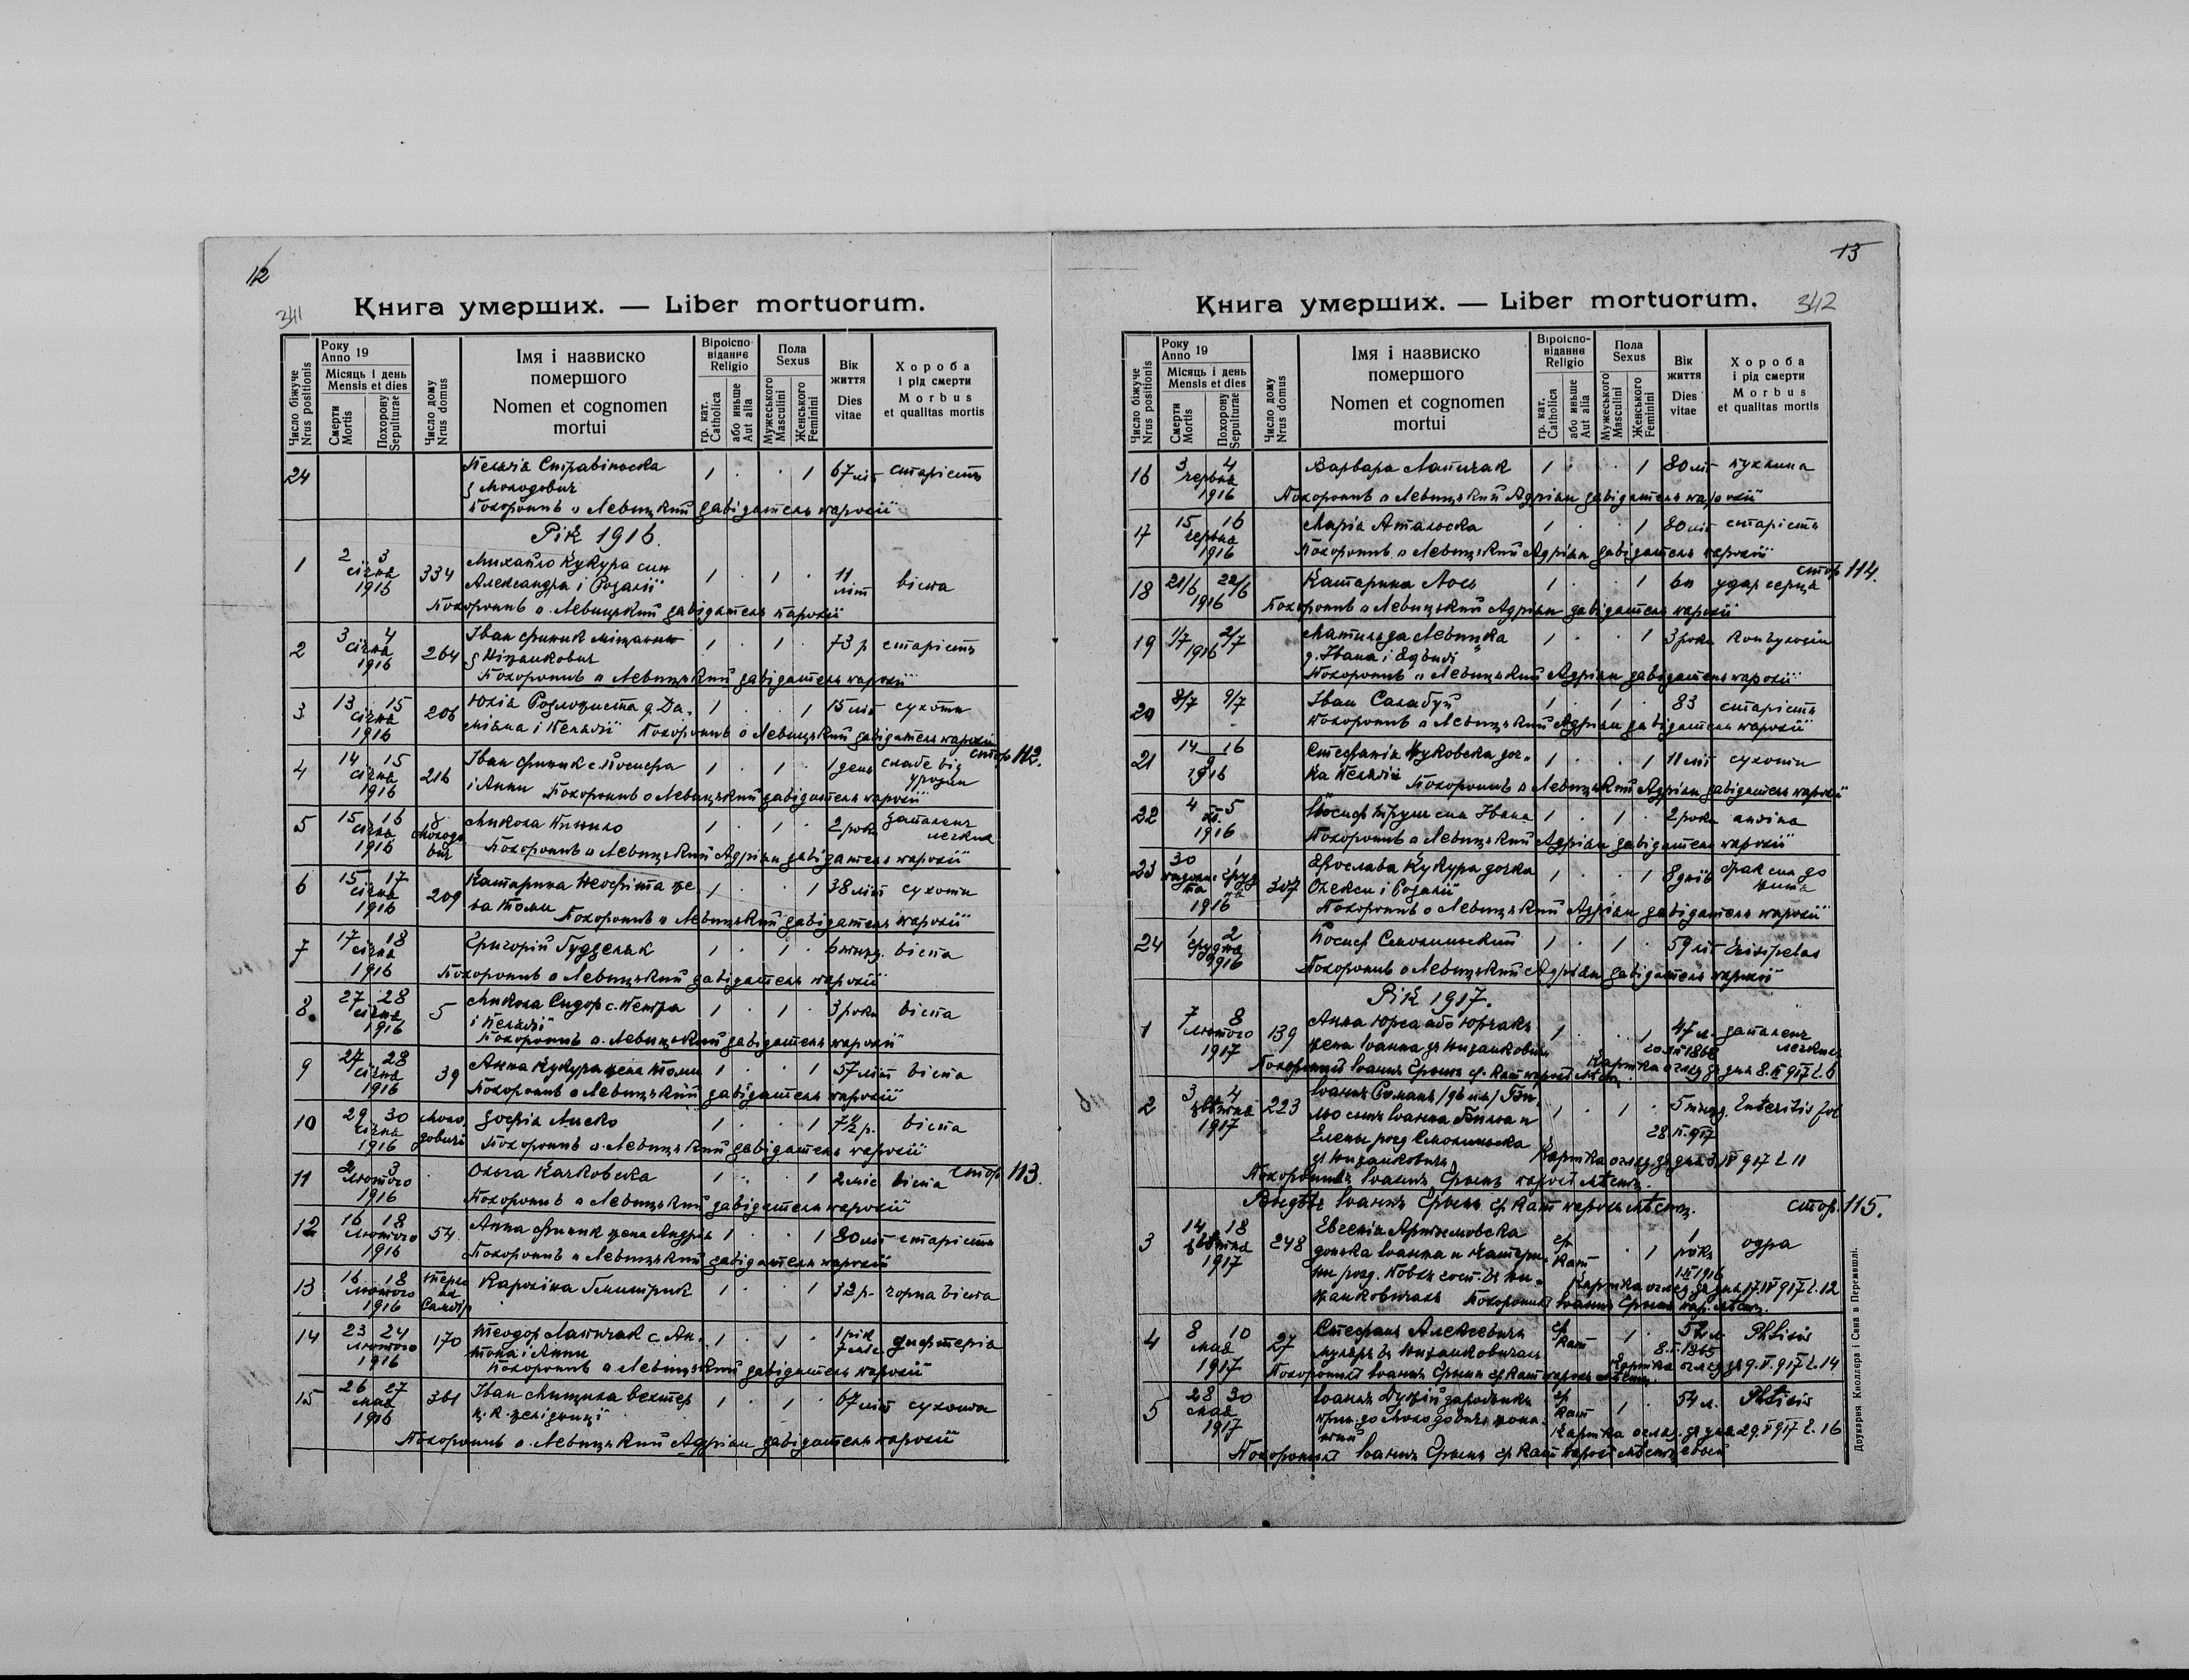 12
341
Книга умерших. — Liber mortuorum.
Число біжуче
Nrus positionis
Року
Anno 19
Місяць і день
Mensis et dies
Смерти
Mortis
Похорону
Sepulturae
Число дому
Nrus domus
Імя і назвиско
помершого
Nomen et cognomen
mortui
Віроіспо-
віданнє
Religio
гр. кат.
Catholica
або иньше
Aut alia
Пола
Sexus
Мужеського
Masculini
Женського
Feminini
Вік
життя
Dies
vitae
Хороба
і рід смерти
Morbus
et qualitas mortis
24 Пелагія 1 . . 1 67 літ старість
з Молодович
Похоронив о Левицький завідатель парохії
Рік 1916.
1 2 3 січня 1916 334 Михайло Кукура син 1 . 1 . 11 літ віспа
Александра і Розалії
Похоронив о. Левицький завідатель парохії
2 3 4 січня 1916 264 Іван Финик міщанин 1 . 1 . 73 р старість
з Ніжанкович
Похоронив о Левицький завідатель парохії
3 13 15 січня 1916 206 Юлія д. Да- 1 . . 1 15 літ сухоти
міяна і Пелагії Похоронив о Левицький завідатель парохії
стор 112.
4 14 15 січня 1916 216 Іван Финик с Йосифа 1 . 1 . 1 день слабе від уродин
і Анни Похоронив о Левицький завідатель парохії
5 15 16 січня 1916 з Молодович Микола 1 . 1 . 2 роки запаленє легких
Похоронив о Левицький Адріян завідатель парохії
6 15 17 січня 1916 209 Катарина Неофіта же- 1 . . 1 38 літ сухоти
на Томи Похоронив о Левицький завідатель парохії
7 17 18 січня 1916 Григорій Гудзеляк 1 . 1 . 6 тижд. віспа
Похоронив о Левицький завідатель парохії
8. 27 28 січня 1916 5 Микола Сидор с. Петра 1 . 1 . 3 роки віспа
і Пелагії
Похоронив о. Левицький завідатель парохії
9 27 28 січня 1916 39 Анна Кукура жена Томи 1 . . 1 57 літ віспа
Похоронив о Левицький завідатель парохії
10 29 30 січня 1916 Молодовичі Зофія Лиско 1 . . 1 7½ р. віспа
Похоронив о. Левицький завідатель парохії
11 2 3 лютого 1916 Ольга Качковська 1 . . 1 2 міс віспа стор 113.
Похоронив о Левицький завідатель парохії
12 16 18 лютого 1916 54. Анна Финик жена Андрія 1 . . 1 80 літ старість
Похоронив о Левицький завідатель парохії
13 16 18 лютого 1916 Кароліна 1 . . 1 32 р. чорна віспа
14 23 24 лютого 1916 170 Теодор Лапичак с. Ан- 1 . 1 . 1 рік 7 міс дифтерія
тона і Анни
Похоронив о Левицький завідатель парохії
15 26 27 мая 1916 361 Іван Мищила вехтер 1 . 1 . 67 літ сухоти
ц. к. желізниці
Похоронив о. Левицький Адріян завідатель парохії
13
342
Книга умерших. — Liber mortuorum.
Число біжуче
Nrus positionis
Року
Anno 19
Місяць і день
Mensis et dies
Смерти
Mortis
Похорону
Sepulturae
Число дому
Nrus domus
Імя і назвиско
помершого
Nomen et cognomen
mortui
Віроіспо-
віданнє
Religio
гр. кат.
Catholica
або иньше
Aut alia
Пола
Sexus
Мужеського
Masculini
Женського
Feminini
Вік
життя
Dies
vitae
Хороба
і рід смерти
Morbus
et qualitas mortis
16 3 4 червня 1916 Варвара Лапичак 1 . . 1 80 літ пухлина
Похоронив о Левицький Адріян завідатель парохії
17 15 16 червня 1916 Марія 1 . . 1 80 літ старість
Похоронив о Левицький Адріян завідатель парохії
стор 114.
18 21/6 22/6 1916 Катарина Лось 1 . . 1 60 удар серця
Похоронив о Левицький Адріян завідатель парохії
19 1/7 2/7 1916 Матильда Левицка 1 . . 1 3 роки конвульсія
д. Івана і
Похоронив о Левицький Адріян завідатель парохії
20 8/7 9/7 Іван Салабуй 1 . 1 . 83 старість
Похоронив о Левицький Адріян завідатель парохії
21 14 16 9 1916 Стефанія Жуковска доч- 1 . . 1 11 літ сухоти
ка Пелагії Похоронив о Левицький Адріян завідатель парохії
22 4 5 1916 Йосиф Труш син Івана 1 . 1 . 2 роки ангіна
Похоронив о Левицький Адріян завідатель парохії
23 30 1 грудня 1916 307 Ярослава Кукура дочка 1 . . 1 8 днів брак сил до житя
Олекси і Розалії
Похоронив о Левицький Адріян завідатель парохії
24 1 2 грудня 1916 Йосиф Смолинський 1 . 1 . 59 літ Erisipelas
Похоронив о Левицький Адріян завідатель парохії
Рік 1917.
1 7 8 лютого 1917 139 Анна Юрса або Юрчакъ 1 . . 1 47 л. запаленє легких
жена Іоанна зъ Нижанковичъ
Похоронилъ Іоаннъ гр. кат парох мѣстц.
2 3 4 цвѣтня 1917 223 Іоаннъ Романъ 1 . 1 . 5 тижд. Enteritis fol
сынъ Іоанна и 28.II.917
Елены розд Смолинська
зъ Нижанковичъ Картка огляд. зъ дня 3 IV 917 L. 11
Похоронилъ Іоаннъ парох мѣстц.
Видѣвъ Іоаннъ гр кат парох мѣстц. стор. 115.
3 14 18 цвѣтня 1917 248 Евгенія Артымовска гр кат . 1 1 рокъ одра
донька Іоанна и Катери-
ны розд. въ Ни-
жанковичахъ Похоронилъ Іоаннъ пар. мѣстц.
Картка огляд. зъ дня 17.IV 917 L. 12
4 8 10 мая 1917 27 Стефанъ Алексевичъ гр кат 1 . 52 л. Phtisis
муляръ въ Нижанковичахъ
Похоронилъ Іоаннъ гр кат парох мѣстц.
Картка огляд зъ 9.V.917 L. 14
5 28 30 мая 1917 Іоаннъ гр кат 1 . 54 л. Phtisis
Картка огляд. зъ дня 29.V 917 L. 16
Похоронилъ Іоаннъ гр кат парох мѣстцевый
Друкарня Кноллєра і Сена в Перемишлі.